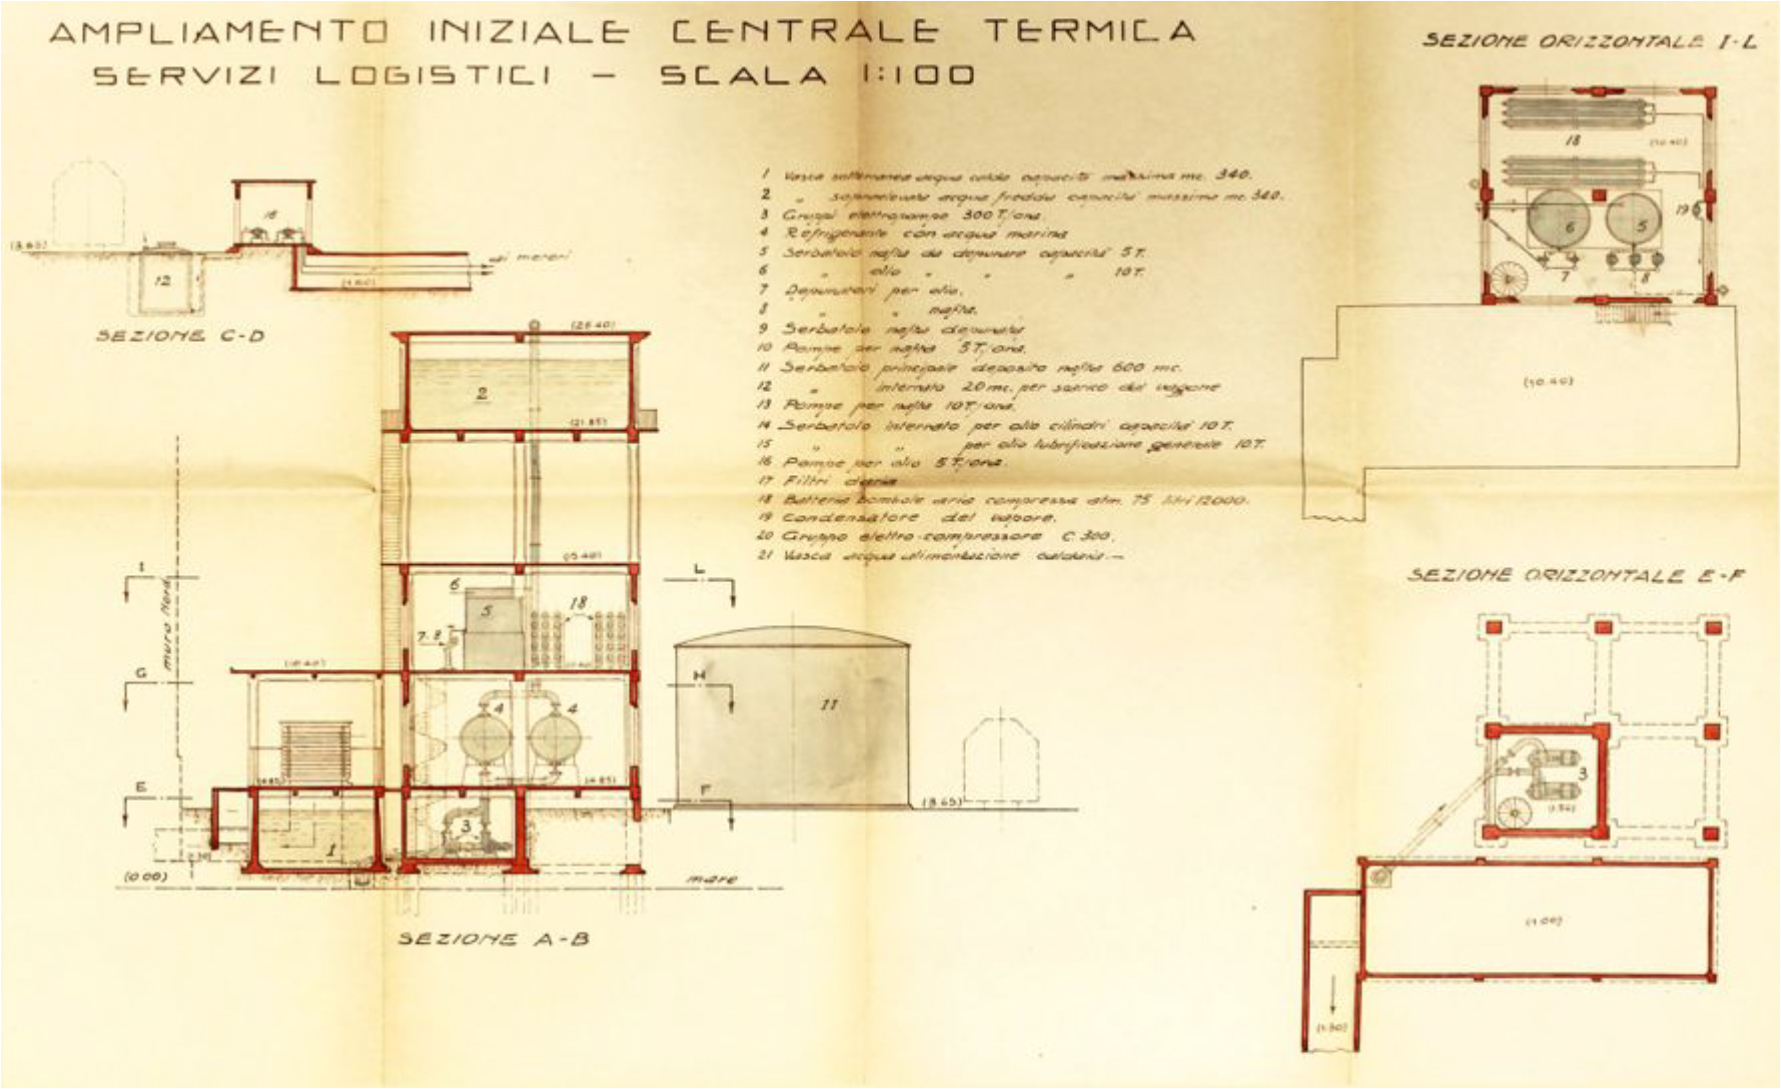 AMPLIAMENTO INIZIALE CENTRALE TERMICA
SERVIZI LOGISTICI – SCALA 1:100
1 Vasca sotterranea acqua calda capacità massima mc. 340.
2 " sopraelevata acqua fredda capacità massima mc. 340.
3 Gruppi elettropompe 300 T/ora.
4 Refrigerante con acqua marina
5 Serbatoio nafta da depurare capacità 5 T.
6 " olio " " " 10 T.
7 Depuratori per olio.
8 " " nafta.
9 Serbatoio nafta depurata
10 Pompe per nafta 5 T/ora.
11 Serbatoio principale deposito nafta 600 mc.
12 " interrato 20 mc. per scarico dal vagone
13 Pompe per nafta 10 T/ora.
14 Serbatoio interrato per olio cilindri capacità 10 T.
15 " " per olio lubrificazione generale 10 T.
16 Pompe per olio 5 T/ora.
17 Filtri d'aria
18 Batteria bombole aria compressa atm. 75 litri 12000.
19 Condensatore del vapore.
20 Gruppo elettro-compressore C. 300.
21 Vasca acqua alimentazione caldaria. —
(3.65)
16
12
ai motori
(1.60)
SEZIONE C-D
(21.85)
2
(15.40)
I
L
muro Nord
6
5
18
7-8
(10.40)
G
H
4
4
11
(4.85)
(4.85)
E
F
(3.65)
1
3
(0.00)
mare
SEZIONE A-B
SEZIONE ORIZZONTALE I-L
18
(10.40)
6
5
19
7
8
(10.40)
SEZIONE ORIZZONTALE E-F
3
(1.00)
(1.30)